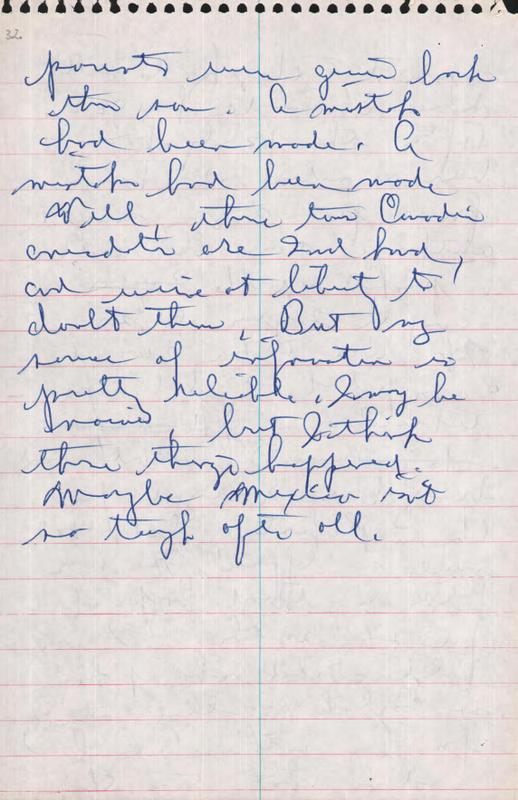 32.
parents were given back
their son. A mistake
had been made. A
mistake had been made
Well, these two Canadian
anecdotes are 2nd hand,
and we're at liberty to
doubt them. But my
source of information is
pretty reliable. I may be
naive, but I think
these things happened.
Maybe Mexico isn't
so tough after all.